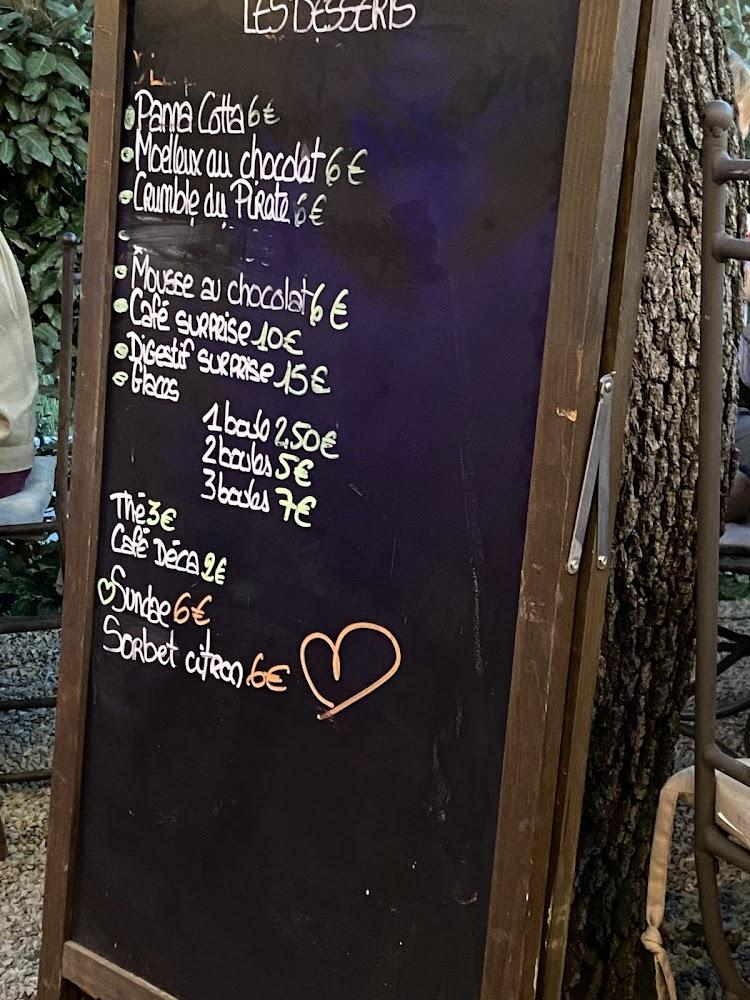 LES DESSERTS
Panna Cotta 6€
Moelleux au chocolat 6€
Crumble du Pirate 6€
Mousse au chocolat 6€
Café surprise 10€
Digestif surprise 15€
Glaces
1 boule 2,50€
2 boules 5€
3 boules 7€
Thé 3€
Café Déca 2€
Sundae 6€
Sorbet citron 6€